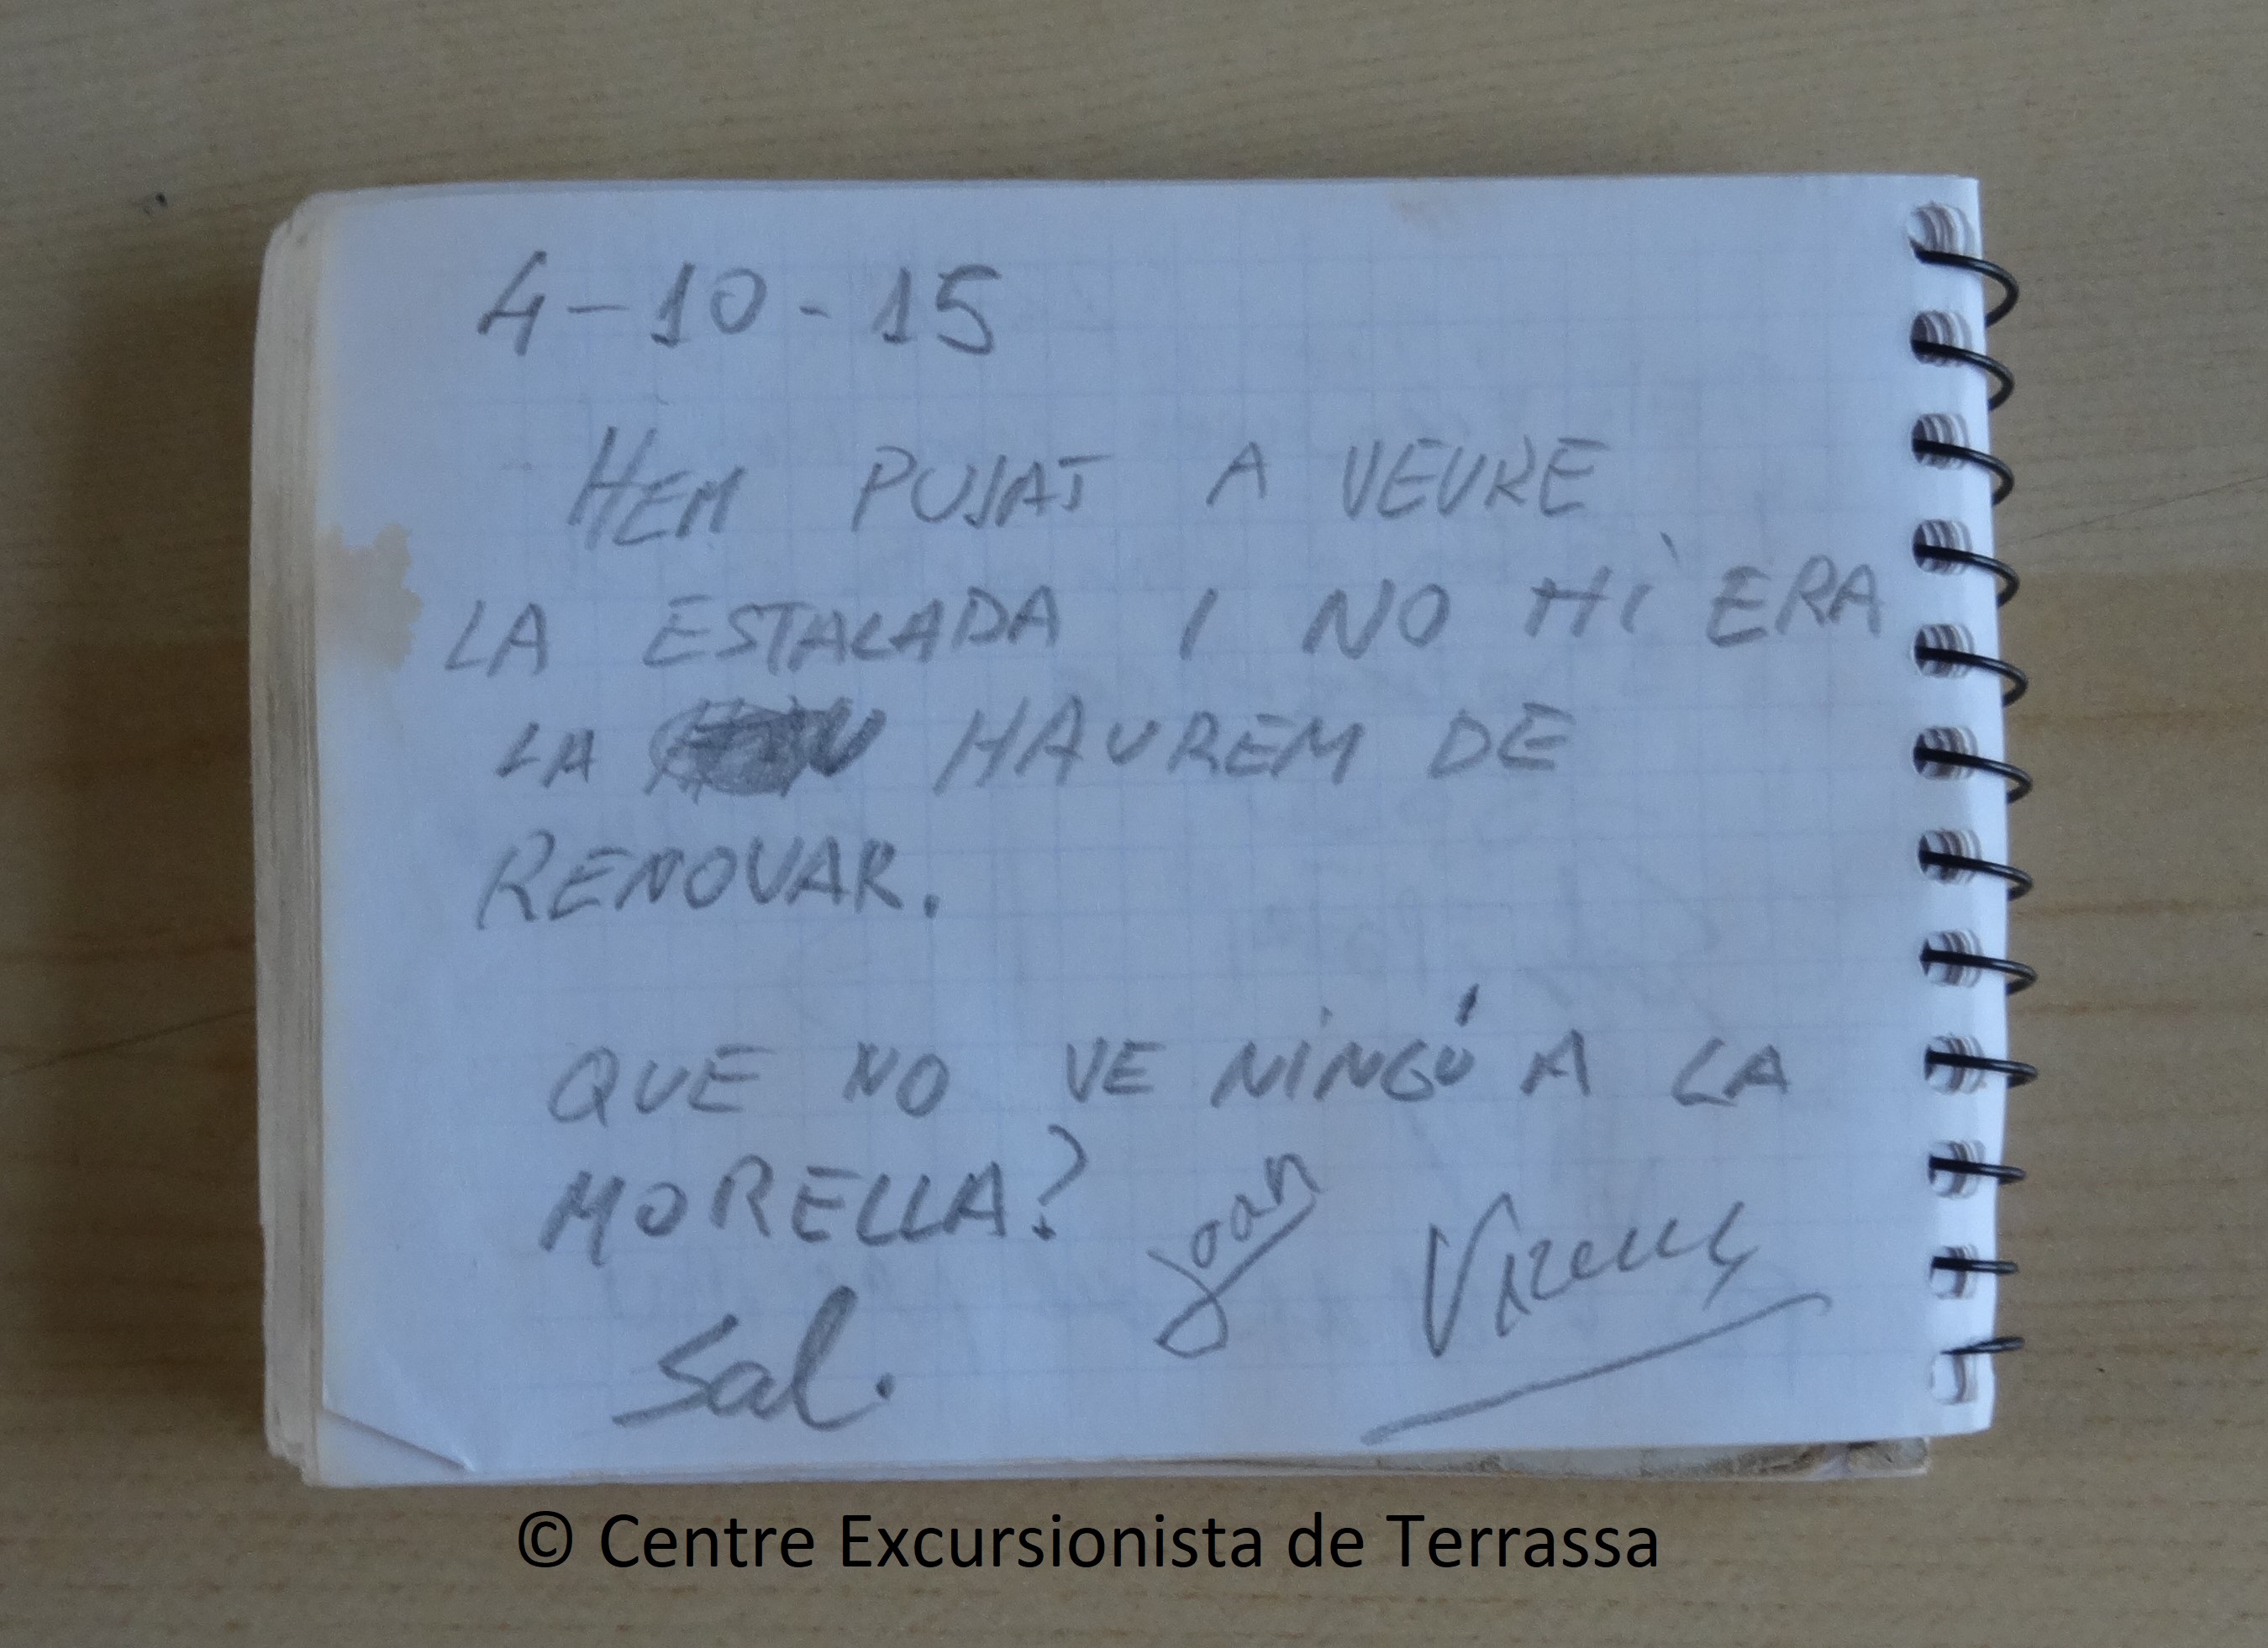 4-10-15
HEM PUJAT A VEURE
LA ESTALADA I NO HI ERA
LA HAUREM DE
RENOVAR.
QUE NO VE NINGÚ A LA
MORELLA?
Joan
Sal.
© Centre Excursionista de Terrassa